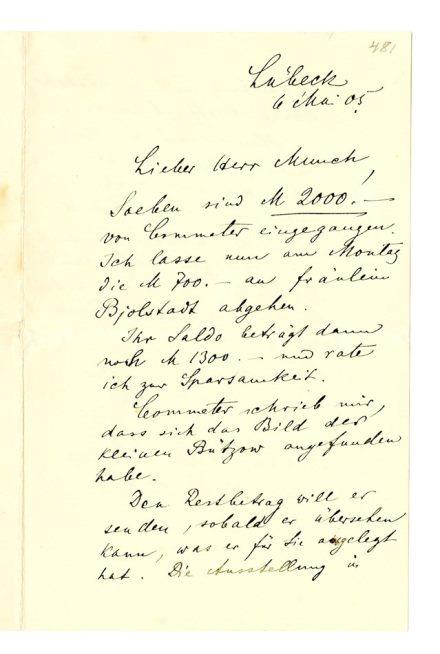 481
Lübeck
6 Mai 05.
Lieber Herr Munch,
Soeben sind M 2000.—
von Commeter eingegangen.
Ich lasse nun am Montag
die M 700.— an fräulein
Bjolstadt abgehen.
Ihr Saldo beträgt dann
noch M 1300.— und rate
ich zur Sparsamkeit.
Commeter schrieb mir,
dass sich das Bild der
kleinen Bützow angefunden
habe.
Den Restbetrag will er
senden, sobald er übersehen
kann, was er für Sie ausgelegt
hat. Die Ausstellung in